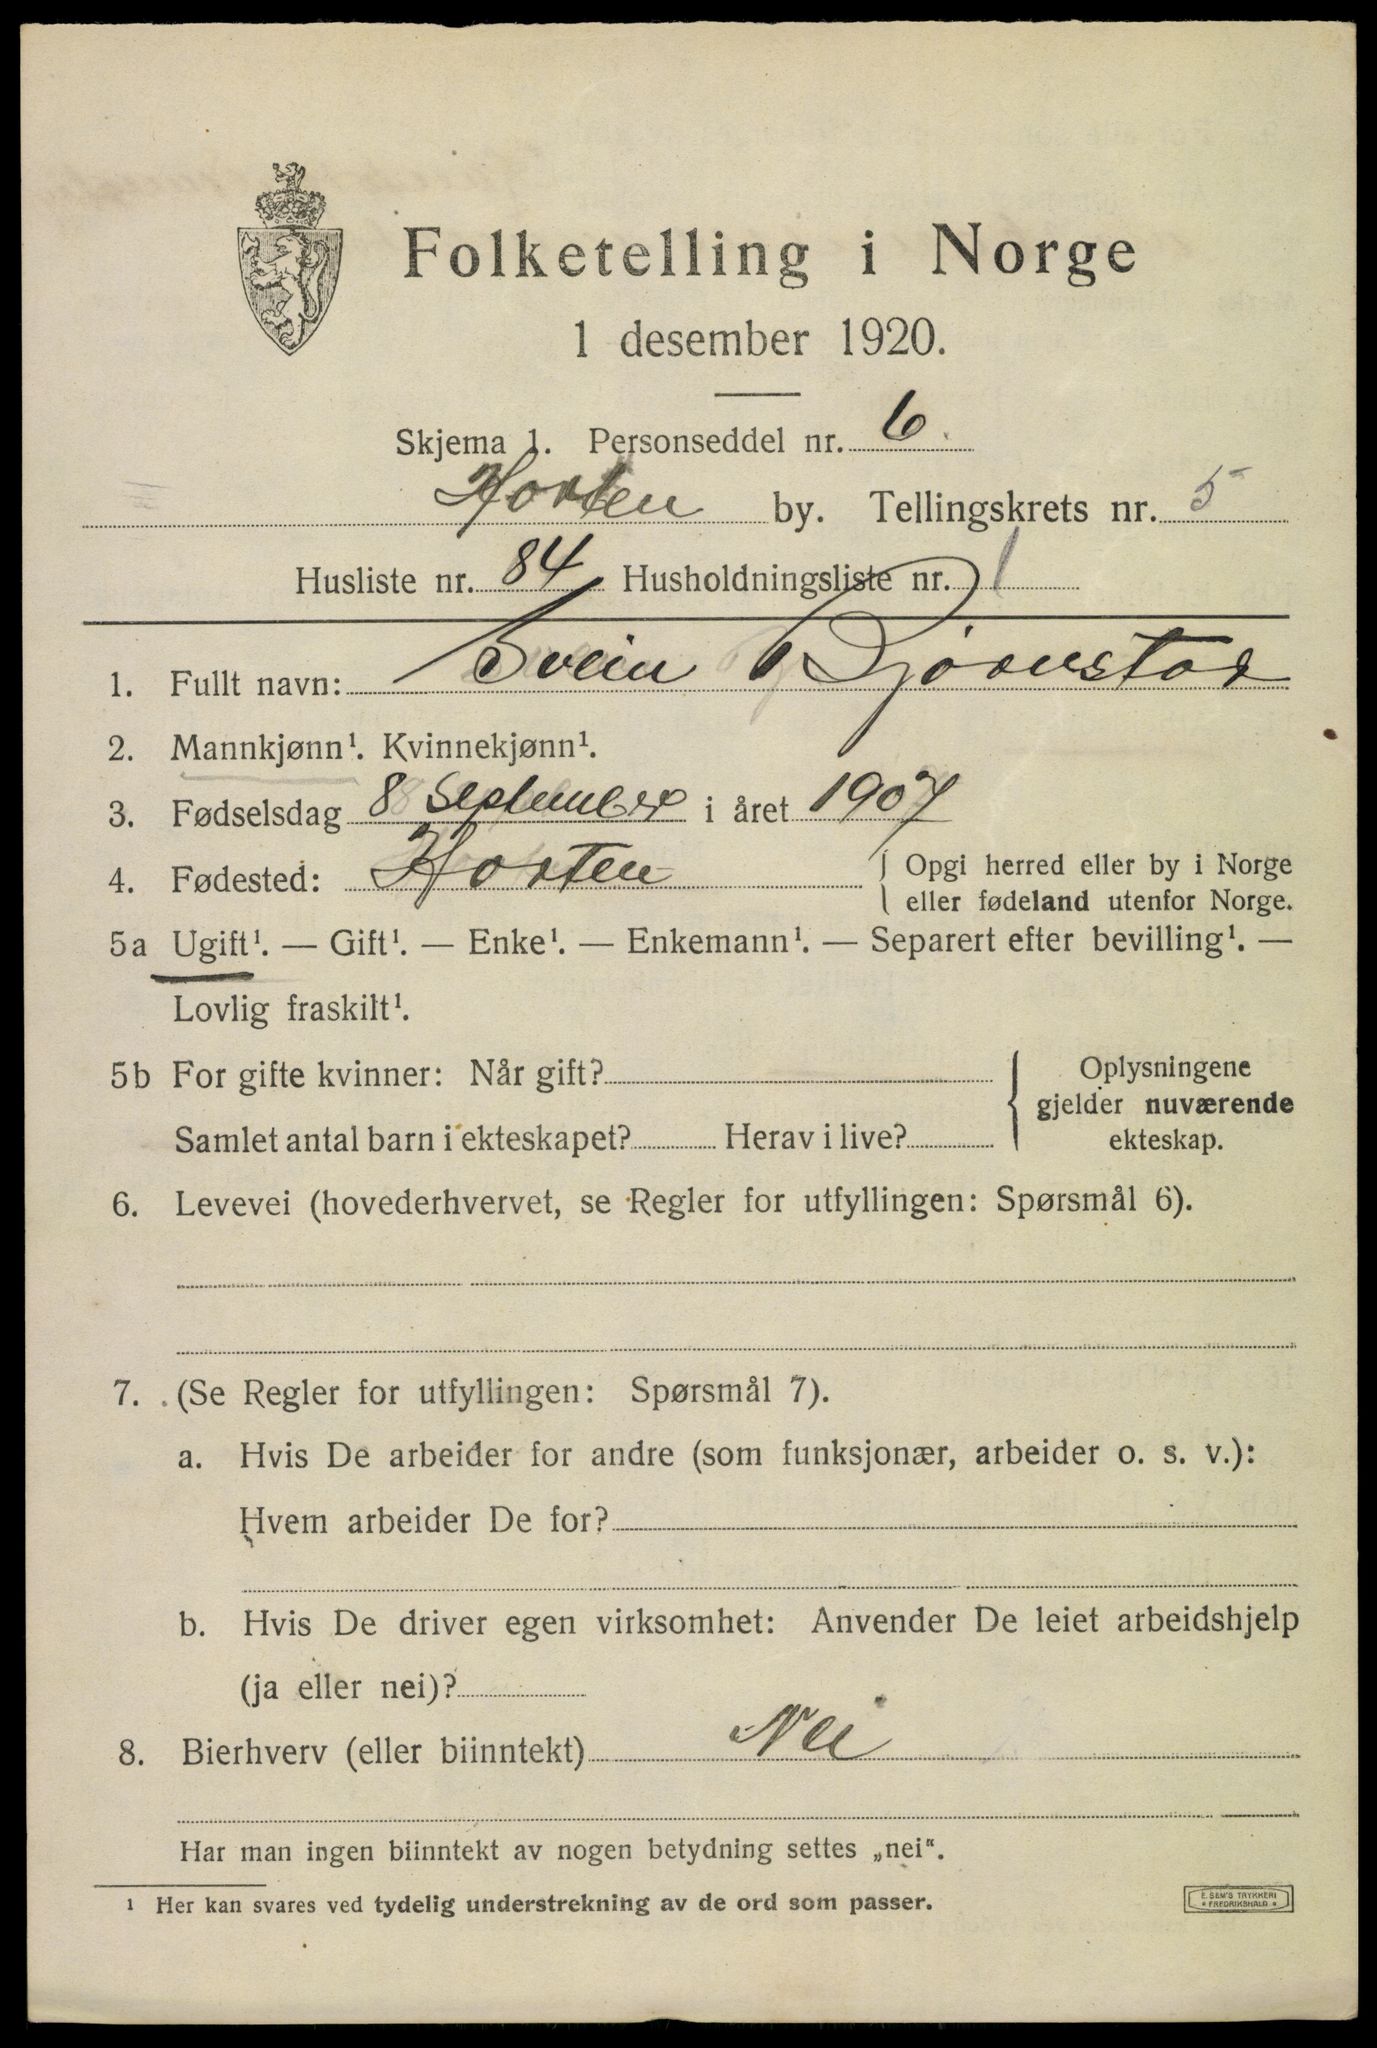 Folketelling i Norge
1 desember 1920.
Skjema 1. Personseddel nr. 6
Horten by. Tellingskrets nr. 5
Husliste nr. 84 Husholdningsliste nr. 1
1. Fullt navn: Svein Bjørnstad
2. Mannkjønn¹. Kvinnekjønn¹.
3. Fødselsdag 8 September i året 1907
4. Fødested: Horten { Opgi herred eller by i Norge
eller fødeland utenfor Norge.
5a Ugift¹. — Gift¹. — Enke¹. — Enkemann¹. — Separert efter bevilling¹. —
Lovlig fraskilt¹.
5b For gifte kvinner: Når gift? { Oplysningene
gjelder nuværende
Samlet antal barn i ekteskapet? Herav i live? ekteskap.
6. Levevei (hovederhvervet, se Regler for utfyllingen: Spørsmål 6).
7. (Se Regler for utfyllingen: Spørsmål 7).
a. Hvis De arbeider for andre (som funksjonær, arbeider o. s. v.):
Hvem arbeider De for?
b. Hvis De driver egen virksomhet: Anvender De leiet arbeidshjelp
(ja eller nei)?
8. Bierhverv (eller biinntekt) Nei
Har man ingen biinntekt av nogen betydning settes „nei“.
¹ Her kan svares ved tydelig understrekning av de ord som passer.
E. SEM'S TRYKKERI
FREDRIKSHALD